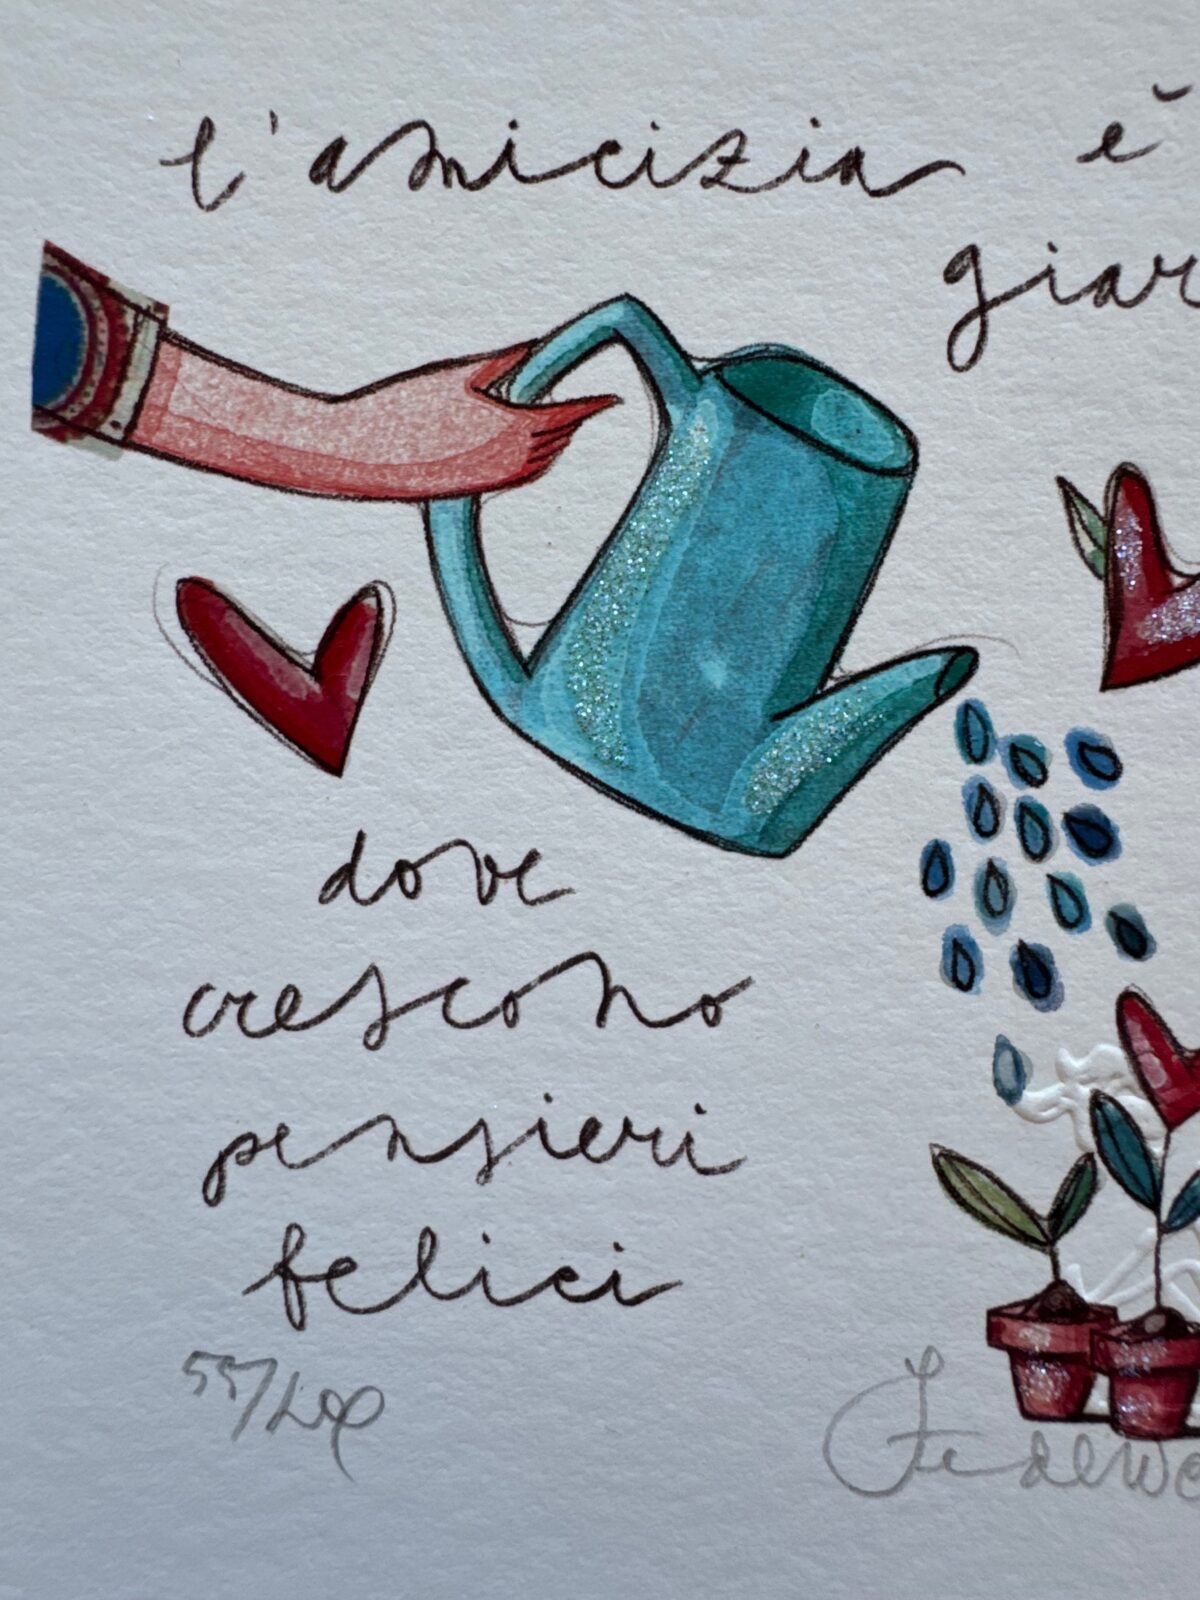 l'amicizia è
giar
dove
crescono
pensieri
felici